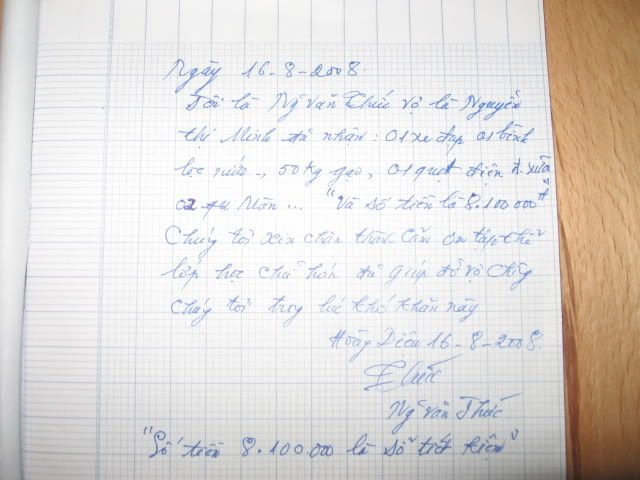 Ngày 16-8-2008.
Tôi là Ng văn Thức vợ là Nguyễn
thị Minh đã nhận: 01 xe đạp 01 bình
lọc nước, 50kg gạo, 01 quạt điện
02 Màn... "Và số tiền là 8.100.000đ"
Chúng tôi xin chân thành cảm ơn tập thể
lớp học chữ hán đã giúp đỡ vợ chồng
chúng tôi trong lúc khó khăn này
Hoàng Diệu 16-8-2008.
Thức
Ng văn Thức
"Số tiền 8.100.000 là sổ tiết kiệm"